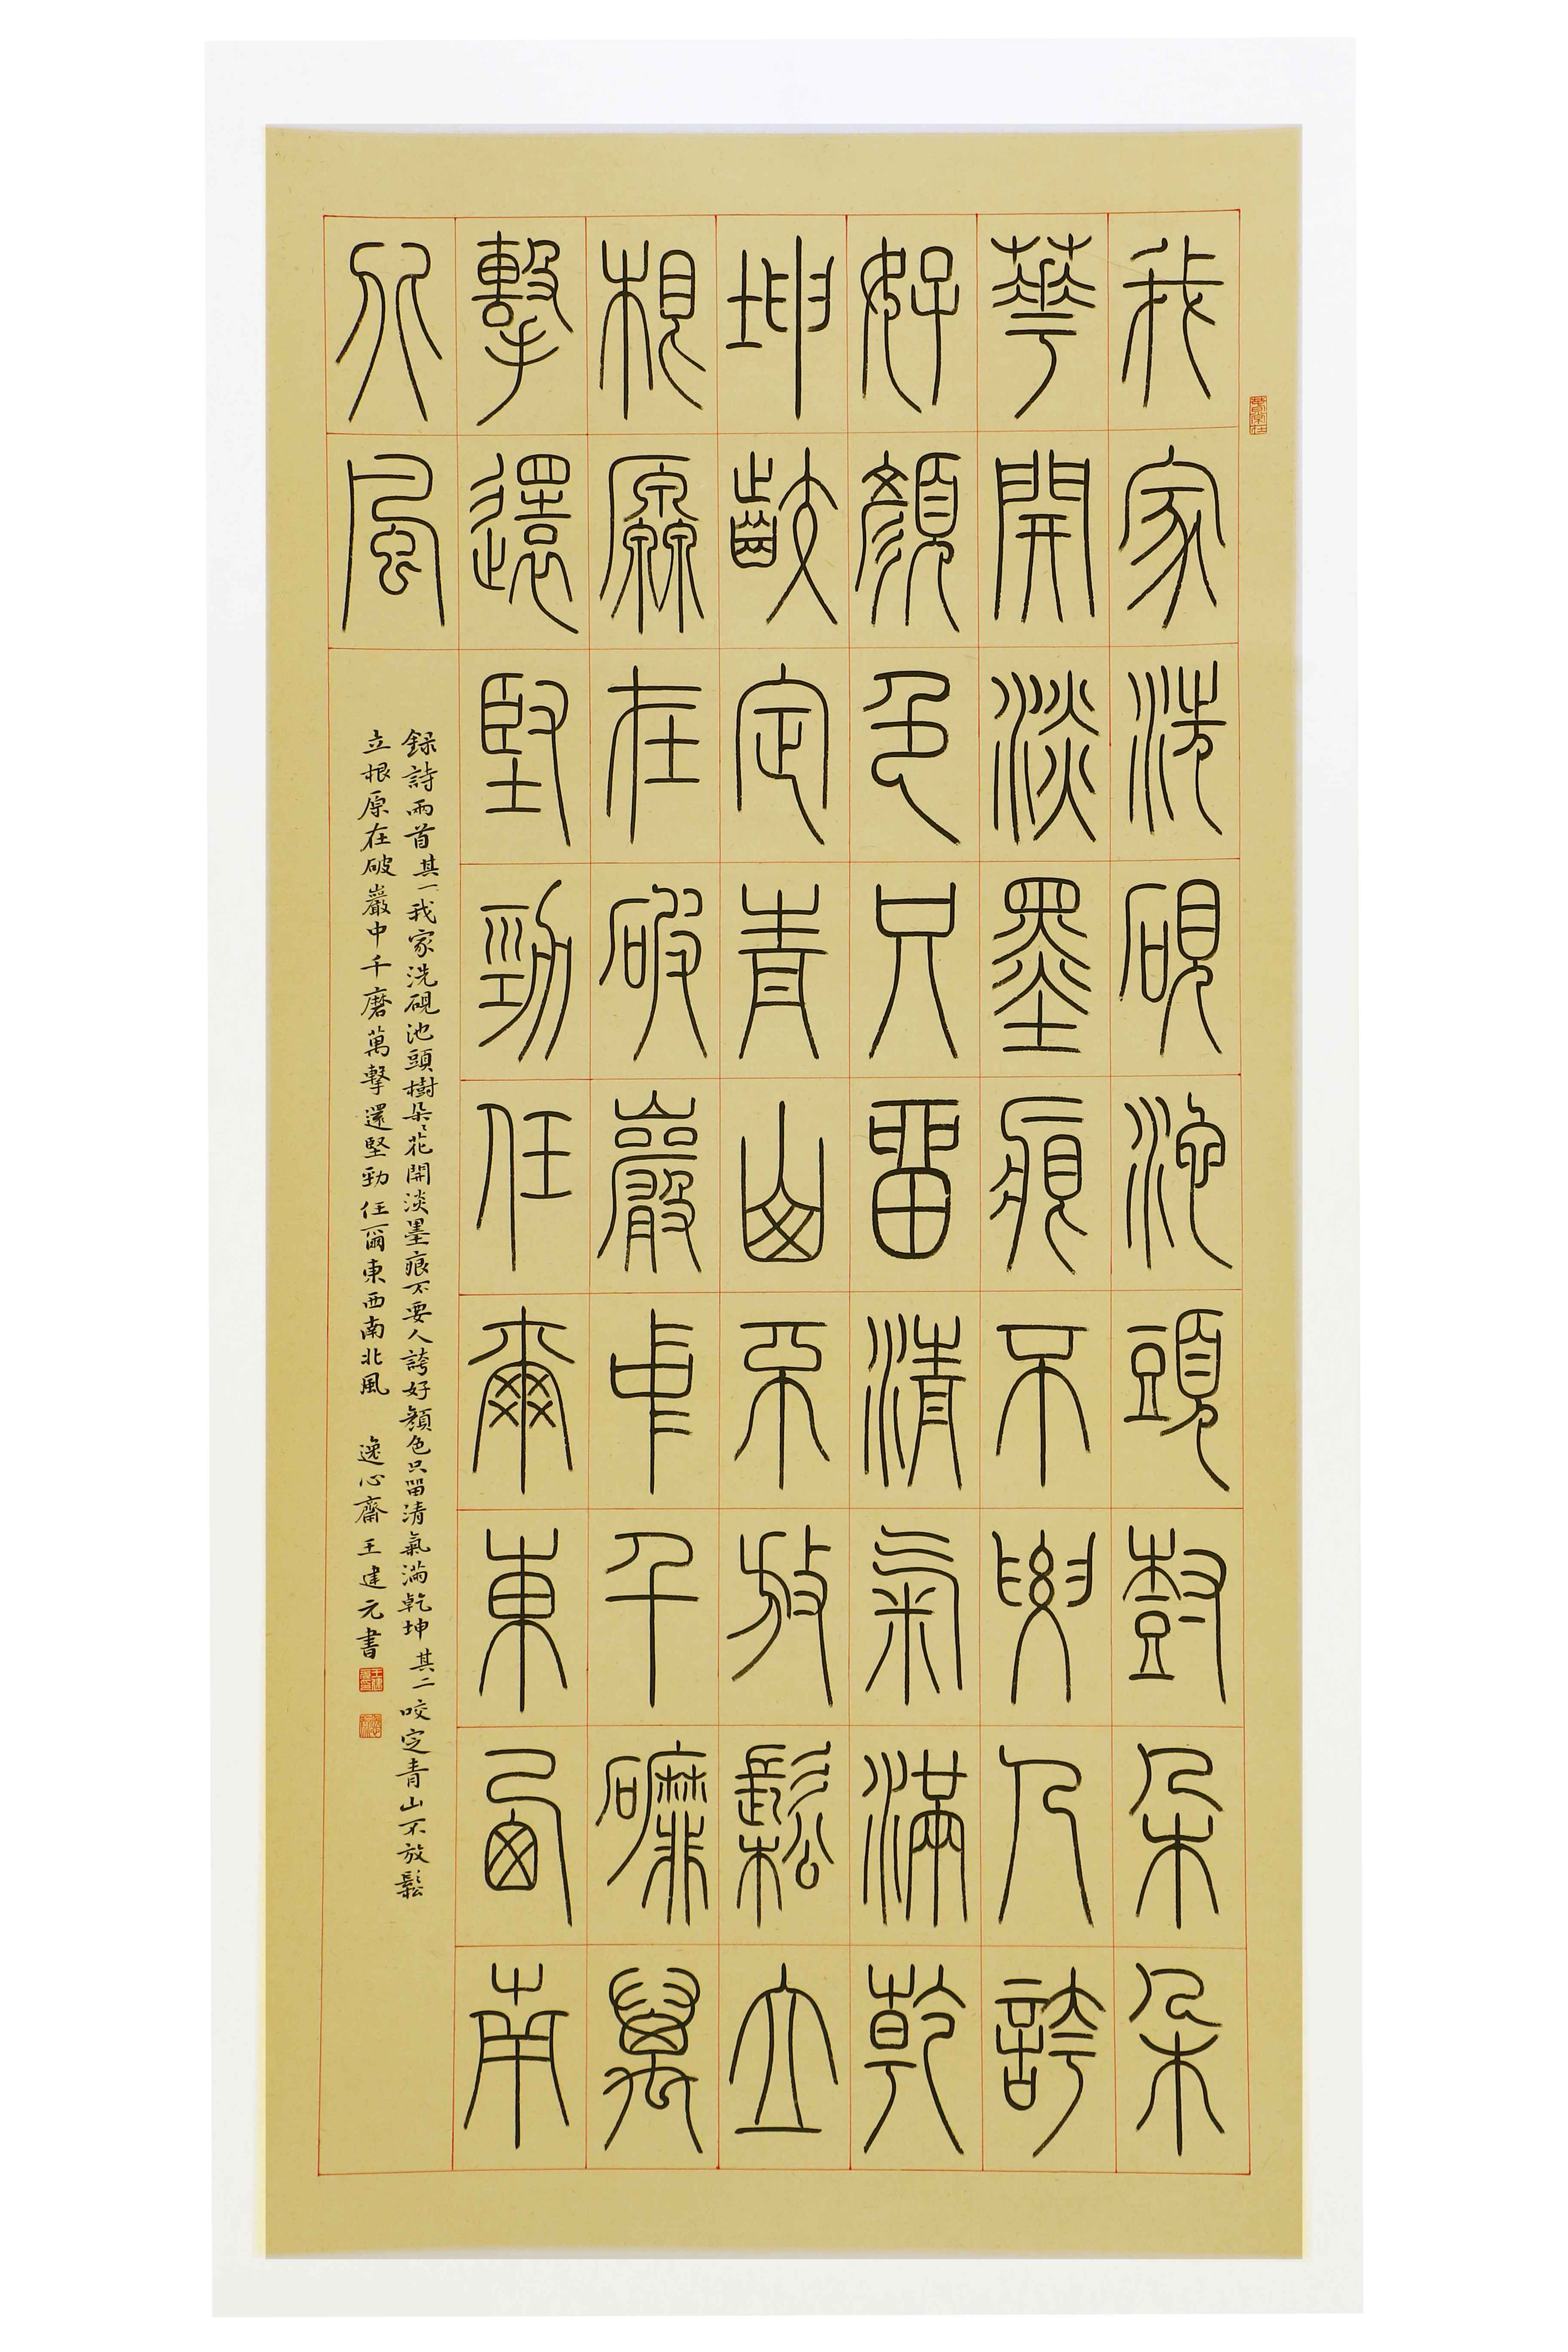 我家洗硯池頭樹朵朵
華開淡墨痕不要人誇
好顏色只留清氣滿乾
坤齩定青山不放鬆立
根原在破巖中千磨萬
擊還堅勁任爾東西南
北風
録詩兩首其一我家洗硯池頭樹朵〻花開淡墨痕不要人誇好顏色只留清氣滿乾坤其二咬定青山不放鬆
立根原在破巖中千磨萬擊還堅勁任爾東西南北風 逸心齋王建元書